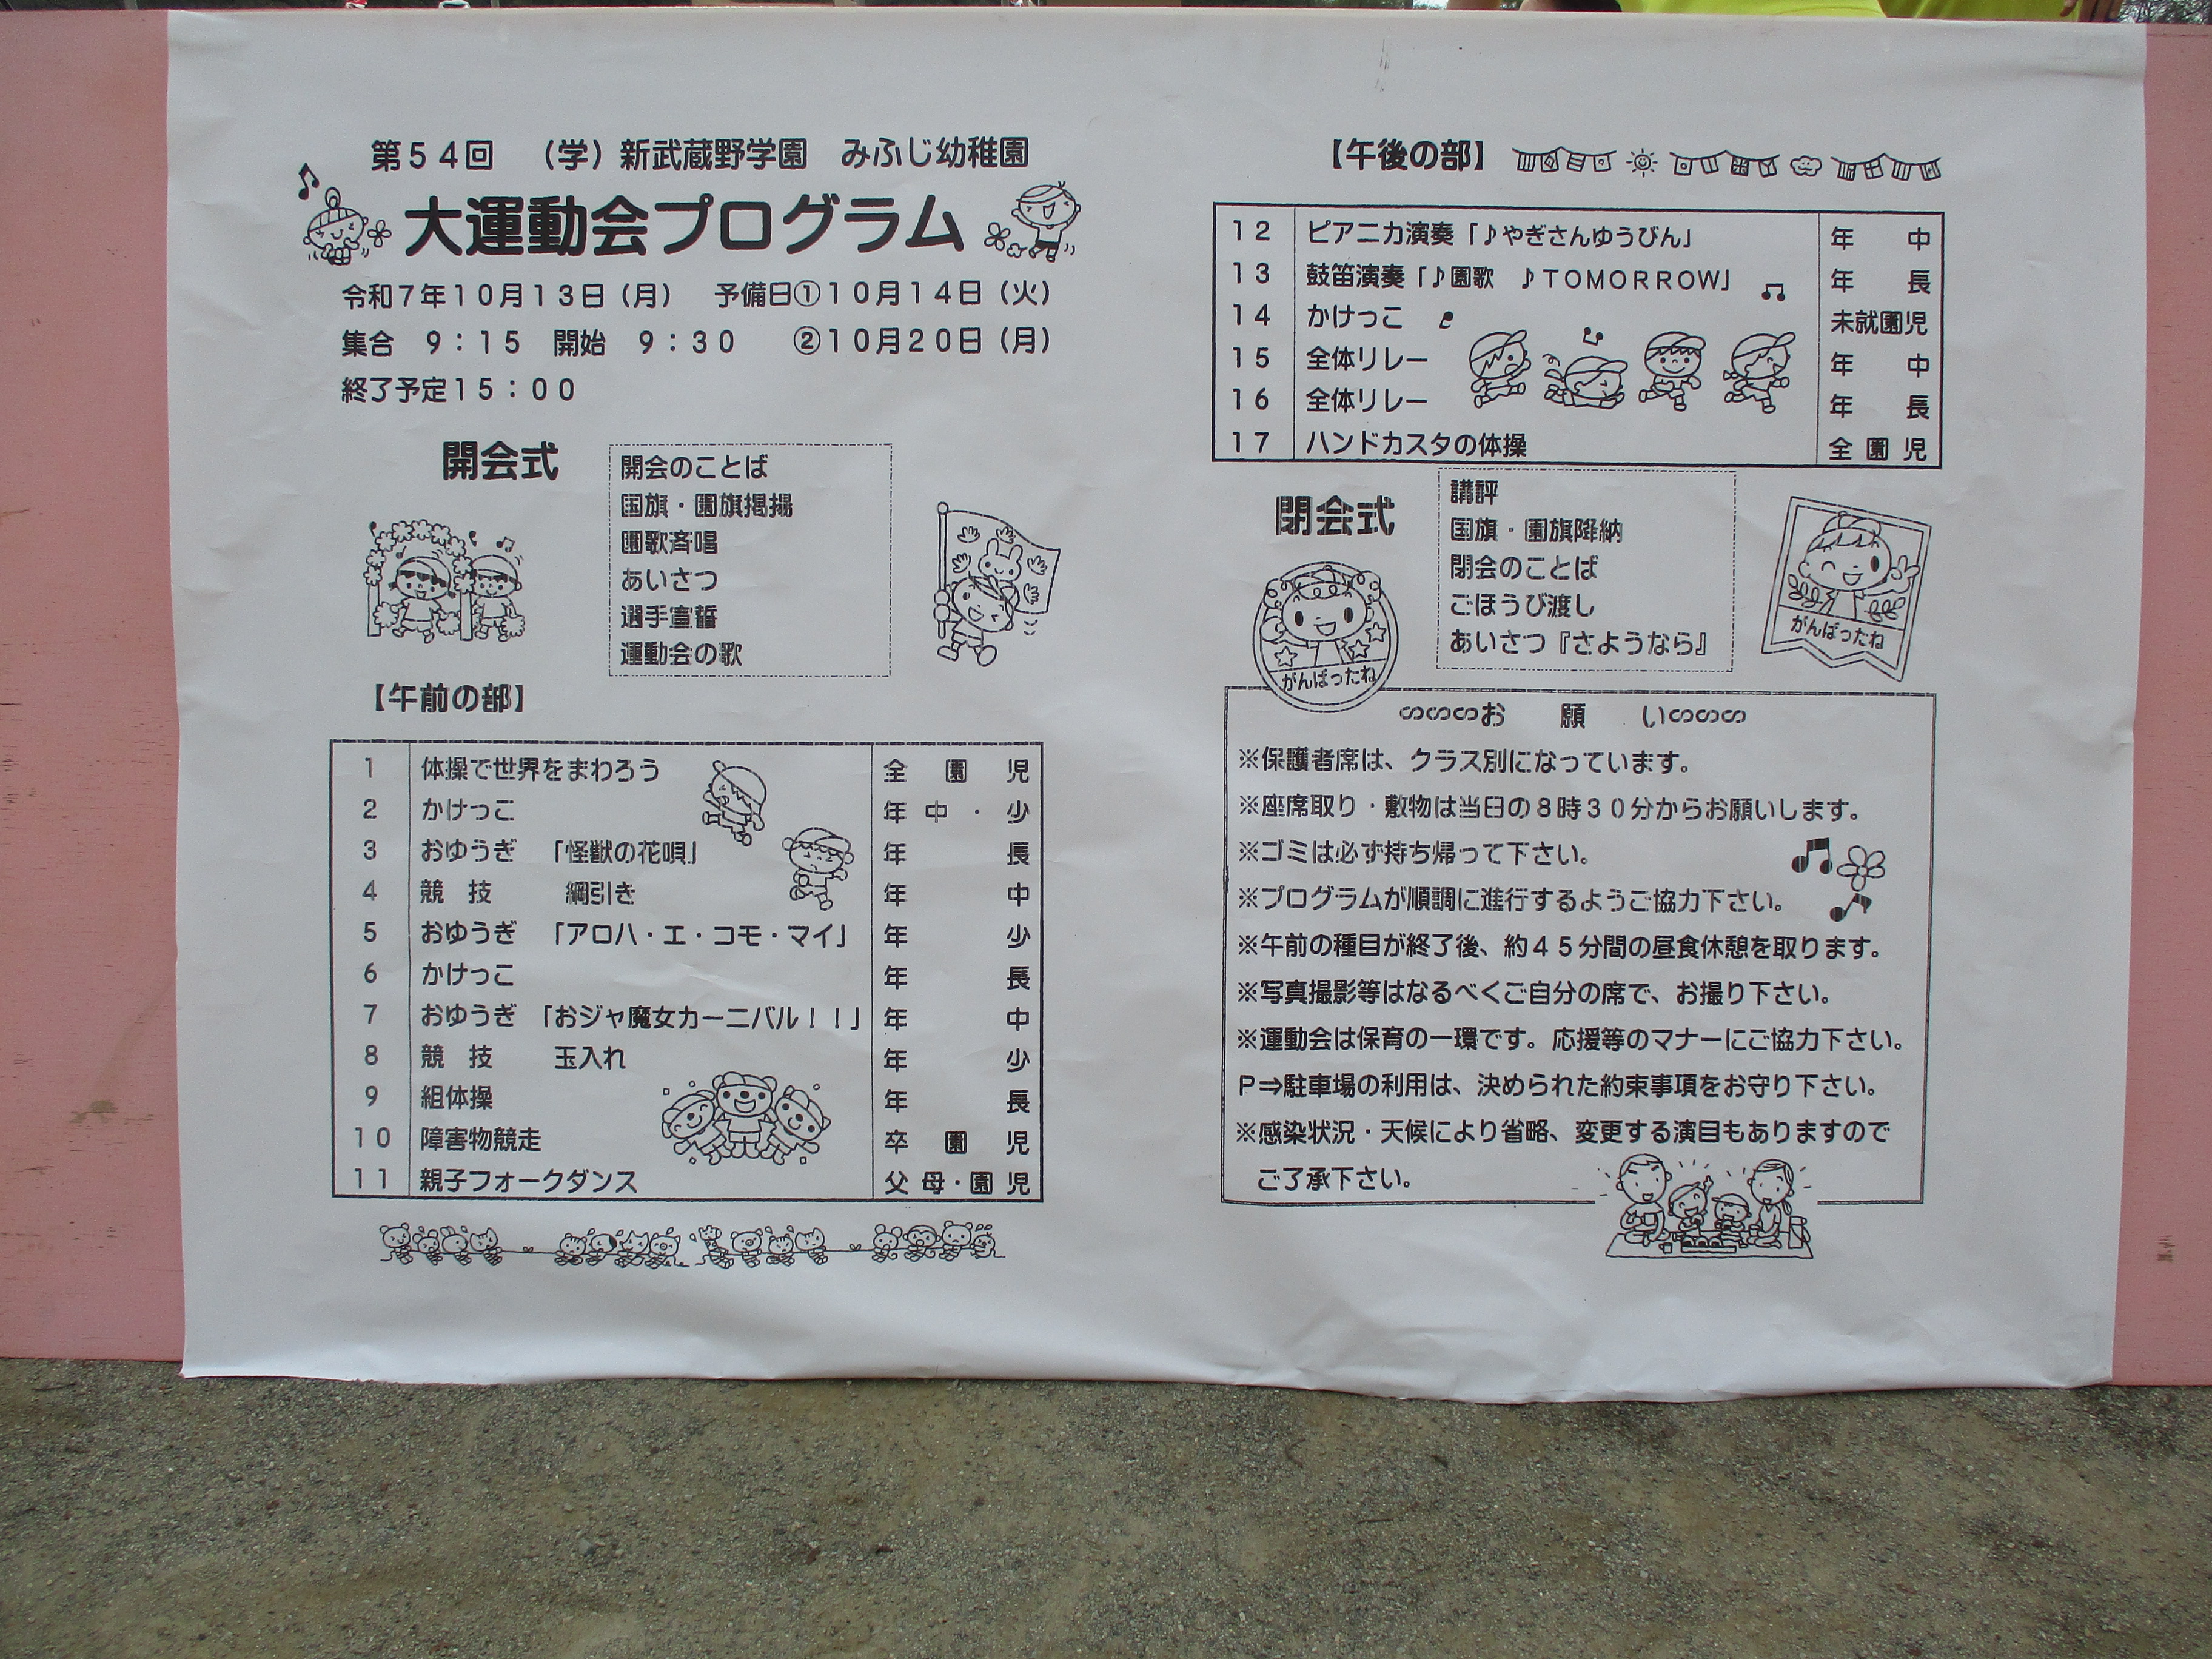 第５４回　（学）新武蔵野学園　みふじ幼稚園
大運動会プログラム
令和７年１０月１３日（月）　予備日①１０月１４日（火）
集合　９：１５　開始　９：３０　②１０月２０日（月）
終了予定１５：００
開会式
開会のことば
国旗・園旗掲揚
園歌斉唱
あいさつ
選手宣誓
運動会の歌
【午前の部】
１　体操で世界をまわろう　全園児
２　かけっこ　年中・少
３　おゆうぎ　「怪獣の花唄」　年長
４　競　技　綱引き　年中
５　おゆうぎ　「アロハ・エ・コモ・マイ」　年少
６　かけっこ　年長
７　おゆうぎ　「おジャ魔女カーニバル！！」　年中
８　競　技　玉入れ　年少
９　組体操　年長
１０　障害物競走　卒園児
１１　親子フォークダンス　父母・園児
【午後の部】
１２　ピアニカ演奏「♪やぎさんゆうびん」　年中
１３　鼓笛演奏「♪園歌　♪ＴＯＭＯＲＲＯＷ」　年長
１４　かけっこ　未就園児
１５　全体リレー　年中
１６　全体リレー　年長
１７　ハンドカスタの体操　全園児
閉会式
講評
国旗・園旗降納
閉会のことば
ごほうび渡し
あいさつ『さようなら』
がんばったね
がんばったね
お　願　い
※保護者席は、クラス別になっています。
※座席取り・敷物は当日の８時３０分からお願いします。
※ゴミは必ず持ち帰って下さい。
※プログラムが順調に進行するようご協力下さい。
※午前の種目が終了後、約４５分間の昼食休憩を取ります。
※写真撮影等はなるべくご自分の席で、お撮り下さい。
※運動会は保育の一環です。応援等のマナーにご協力下さい。
Ｐ⇒駐車場の利用は、決められた約束事項をお守り下さい。
※感染状況・天候により省略、変更する演目もありますので
ご了承下さい。